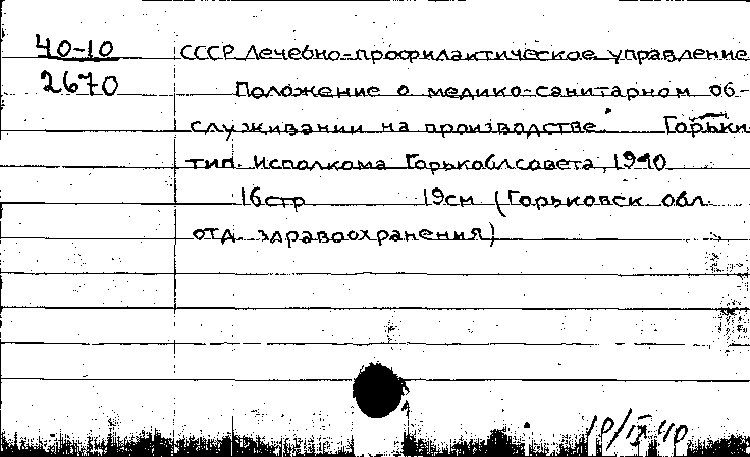 40-10
2670
СССР Лечебно-профилактическое управление
Положение о медико-санитарном об-
служивании на производстве. Горьки
тип. Исполкома Горькоблсовета, 1940
16стр 19см (Горьковск обл.
отд. здравоохранения)